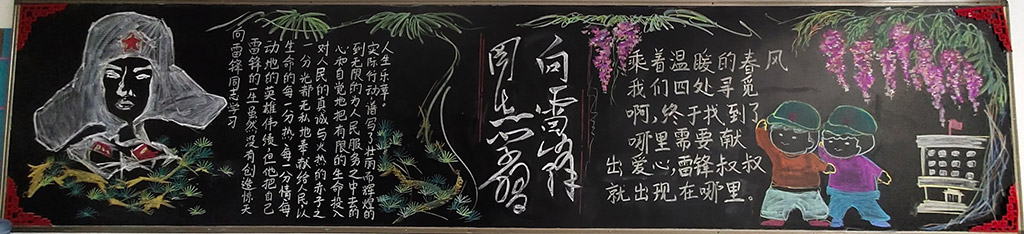 向雷锋同志学习
雷锋的一生虽然没有创造惊天
动地的英雄伟绩,但他把自己
生命的每一分热、每一分情、每
一分光都无私地奉献给人民,以
对人民的真诚与火热的赤子之
心和自觉地把有限的生命投入
到无限的为人民服务之中去的
实际行动谱写了壮丽而辉煌的
人生乐章!
向雷锋
同志学习
乘着温暖的春风
我们四处寻觅
啊,终于找到了
哪里需要献
出爱心,雷锋叔叔
就出现在哪里。